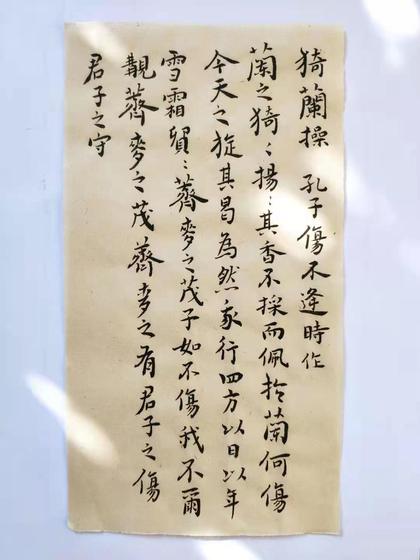 猗蘭操 孔子傷不逢時作
蘭之猗〻揚〻其香不採而佩於蘭何傷
今天之旋其曷為然我行四方以日以年
雪霜貿〻薺麥之茂子如不傷我不爾
覯薺麥之茂薺麥之有君子之傷
君子之守